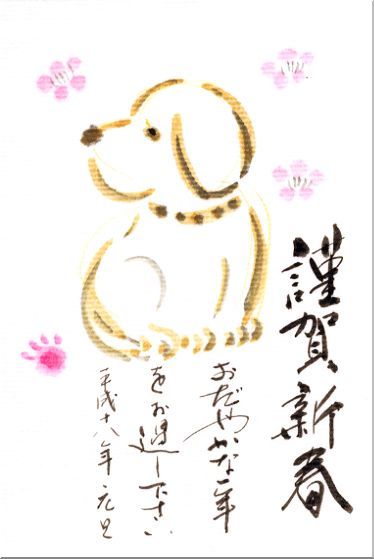 謹賀新春
おだやかな一年
をお過し下さい
平成十八年 元旦